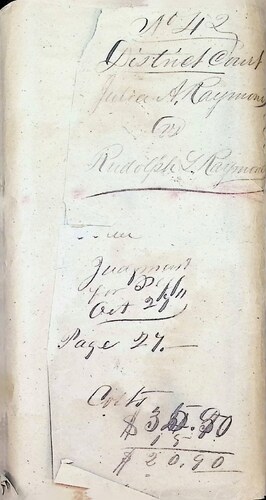 No 42
District Court
Julia A. Raymond
vs
Rudolph L. Raymond
Judgment
for Pl'ff
Oct 29
Page 27.
Costs
15
$ 20.90